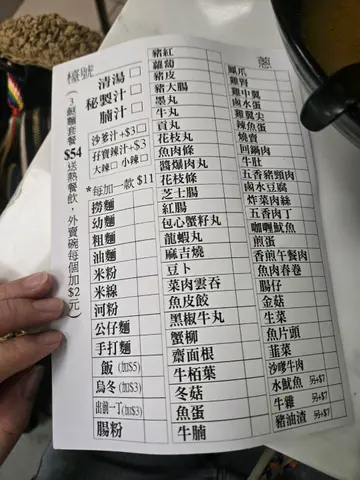 檯號
(3餸麵套餐 $54 送熱餐飲，外賣碗每個加$2元)
清湯 □
秘製汁 □
腩汁 □
沙爹汁+$3 □
孖寶辣汁+$3
大辣□ 小辣□
*每加一款 $11
撈麵
幼麵
粗麵
油麵
米粉
米線
河粉
公仔麵
手打麵
飯 (加$5)
烏冬 (加$3)
出前一丁 (加$3)
腸粉
豬紅
蘿蔔
豬皮
豬大腸
墨丸
牛丸
貢丸
花枝丸
魚肉條
醬爆肉丸
花枝條
芝士腸
紅腸
包心蟹籽丸
龍蝦丸
麻吉燒
豆卜
菜肉雲吞
魚皮餃
黑椒牛丸
蟹柳
齋面根
牛栢葉
冬菇
魚蛋
牛腩
鳳爪
雞腎
雞中翼
鹵水蛋
雞翼尖
辣魚蛋
燒賣
回鍋肉
牛肚
五香豬頸肉
鹵水豆腐
炸菜肉絲
五香肉丁
咖喱魷魚
煎蛋
香煎午餐肉
魚肉春卷
腸仔
金菇
生菜
魚片頭
韭菜
沙嗲牛肉
水魷魚 另+$7
牛雜 另+$7
豬油渣 另+$7